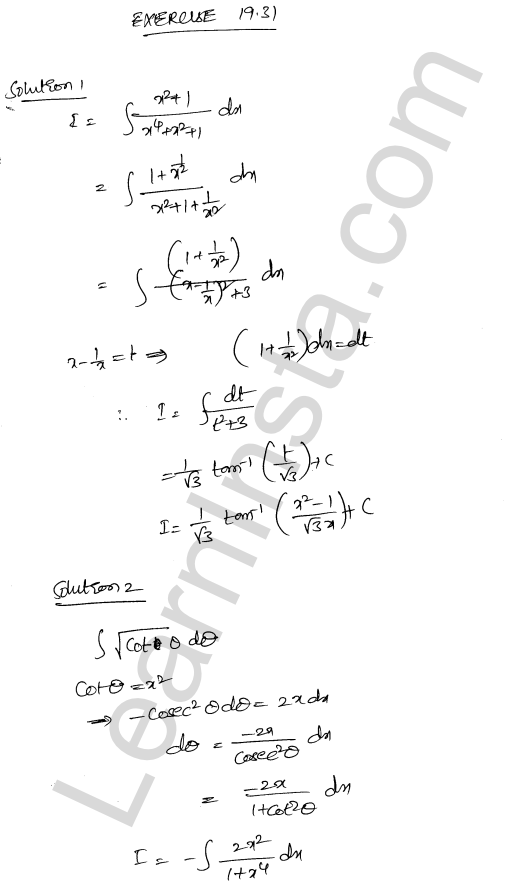 EXERCISE 19.31
Solution 1
I = ∫ (x²+1)/(x⁴+x²+1) dx
= ∫ (1+1/x²)/(x²+1+1/x²) dx
= ∫ (1+1/x²)/((x-1/x)²+3) dx
x-1/x = t ⇒ (1+1/x²)dx=dt
∴ I = ∫ dt/(t²+3)
= 1/√3 tan⁻¹(t/√3)+C
I = 1/√3 tan⁻¹((x²-1)/(√3x))+C
Solution 2
∫ √cot θ dθ
Cot θ = x²
⇒ -Cosec² θ dθ = 2x dx
dθ = -2x/Cosec²θ dx
= -2x/(1+Cot²θ) dx
I = -∫ 2x²/(1+x⁴) dx
LearnInsta.com